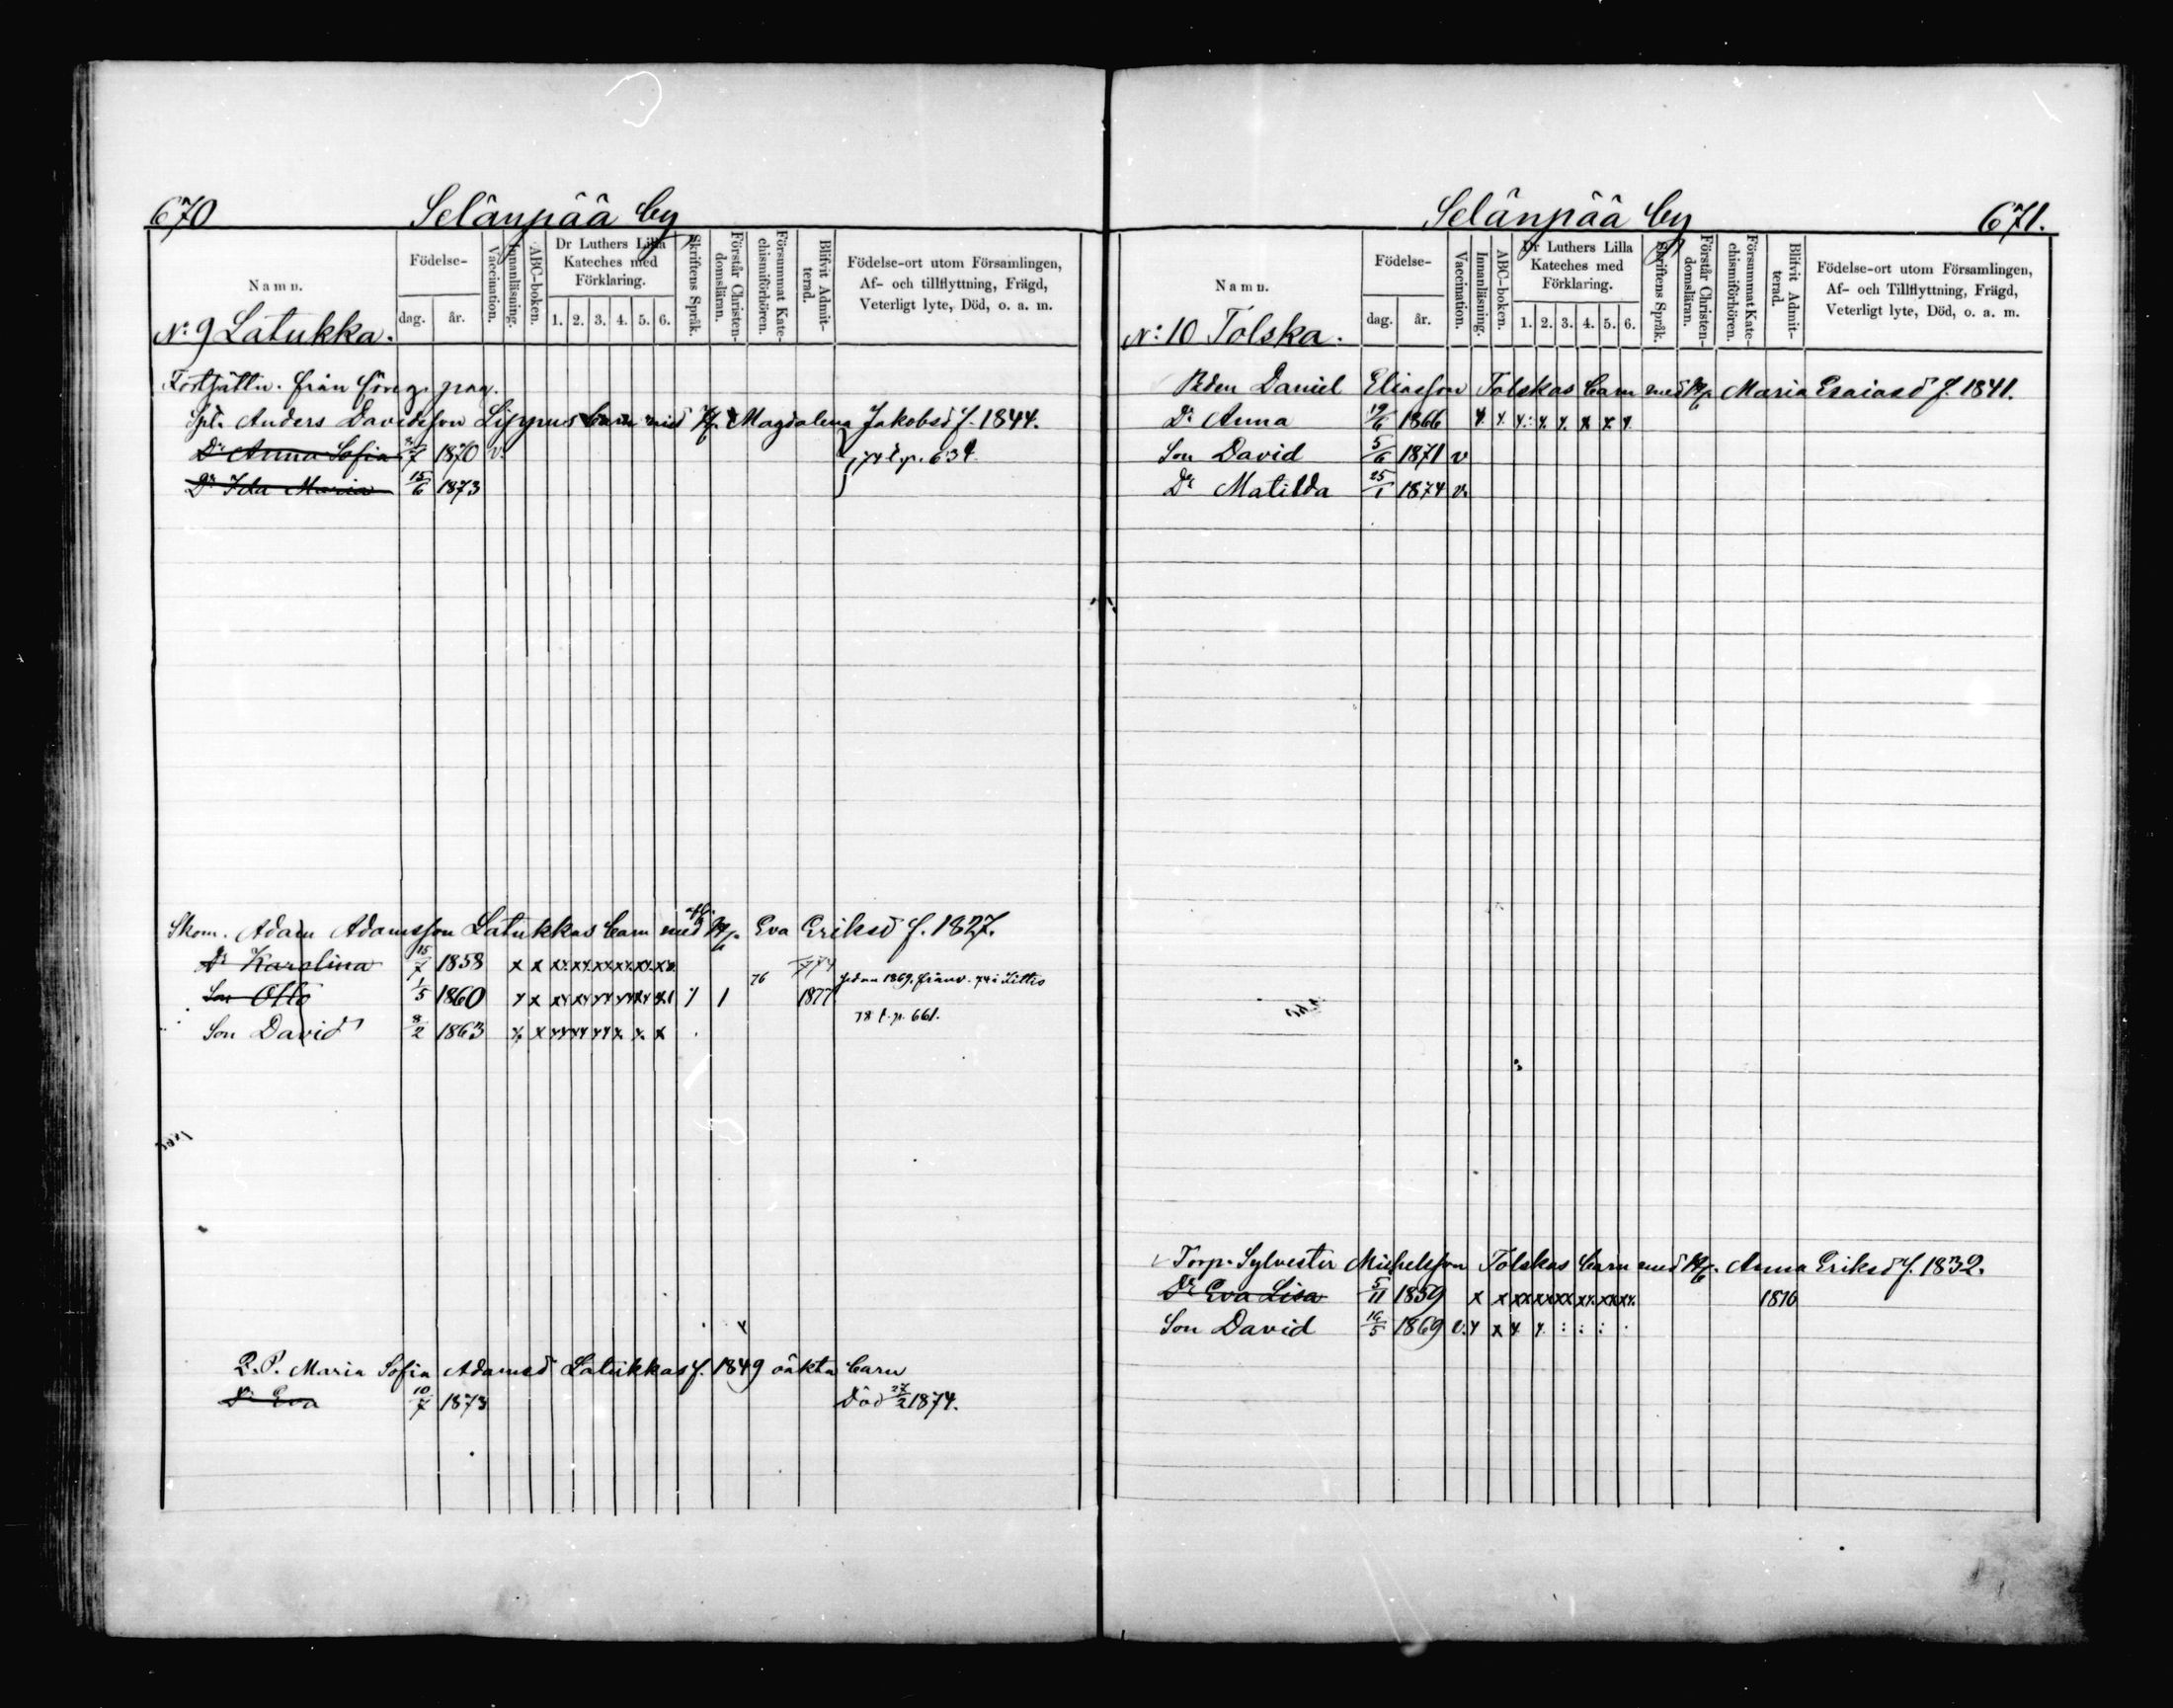 670 Selänpää by
Namn. Födelse- dag. år. Vaccination. Innanläsning. ABC-boken. Dr Luthers Lilla Kateches med Förklaring. 1. 2. 3. 4. 5. 6. Skriftens Språk. Förstår Christen-domsläran. Försummat Kate-chismiförhören. Blifvit Admit-terad. Födelse-ort utom Församlingen, Af- och tillflyttning, Frägd, Veterligt lyte, Död, o. a. m.
No 9 Latukka.
Fortsättn. från föreg. pag.
Spl. Anders Davidsson Lippus barn med Hu Magdalena Jakobsd f. 1844.
Dr Anna Sofia 7 1870 v. 74 t. p. 634
Dr Ida Maria 15/6 1873
Skom. Adam Adamsson Latukkas barn med afl. Hu Eva Eriksd f. 1827.
Dr Karolina 15/7 1858 x x
Son Otto 1/5 1860 76 1877 sedan 1869. frånv. 74 i Littis
78 t. p. 661.
Son David 8/2 1863
Q. P. Maria Sofia Adamsd Latukkas f. 1849 oäkta barn
Dr Eva 10/7 1873 Död 27/2 1874.
Selänpää by 671.
Namn. Födelse- dag. år. Vaccination. Innanläsning. ABC-boken. Dr Luthers Lilla Kateches med Förklaring. 1. 2. 3. 4. 5. 6. Skriftens Språk. Förstår Christen-domsläran. Försummat Kate-chismiförhören. Blifvit Admit-terad. Födelse-ort utom Församlingen, Af- och Tillflyttning, Frägd, Veterligt lyte, Död, o. a. m.
N: 10 Tolska.
Bden Daniel Eliasson Tolskas barn med Hu Maria Esaiasd f. 1841.
Dr Anna 19/6 1866
Son David 5/6 1871 v
Dr Matilda 25/1 1874 v.
Torp. Sylvester Michelsson Tolskas barn med Hu. Anna Eriksd f. 1832.
Dr Eva Lisa 5/11 1859 1876
Son David 16/5 1869 v.